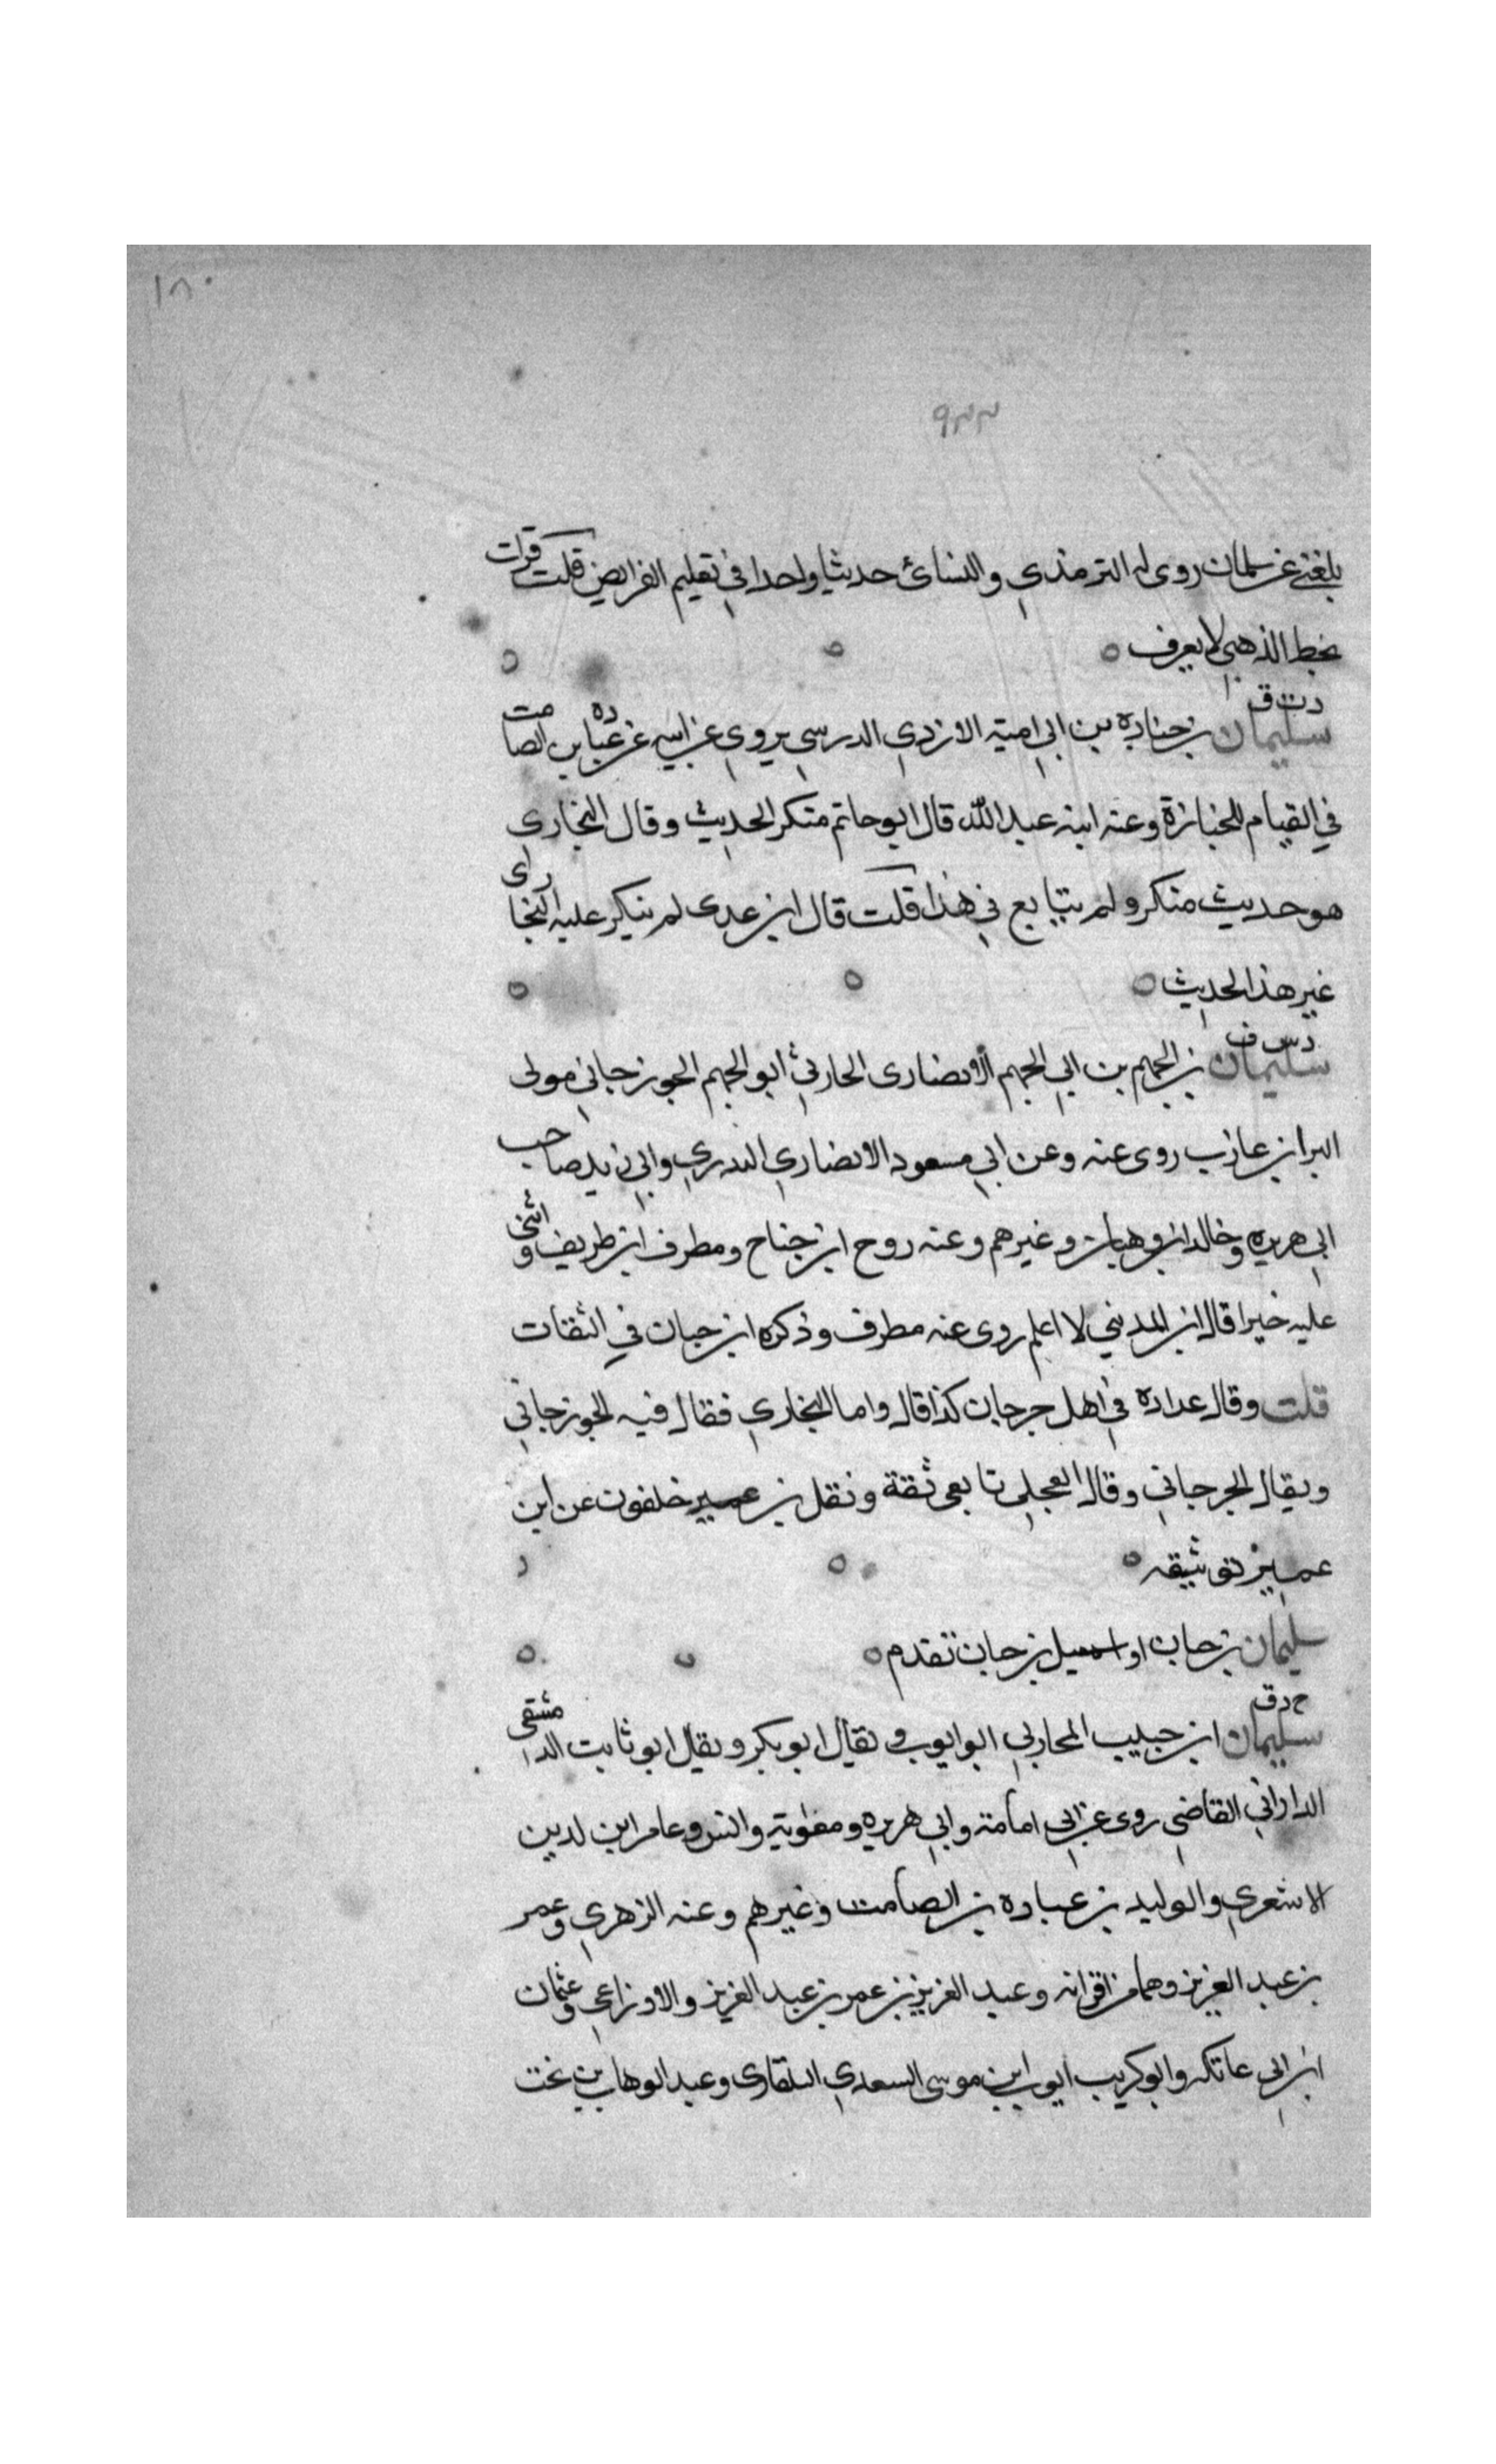 ١٨٠
٩٢٢
بلغني عن سلمان روى له الترمذي والنسائ حديثا واحدا في تعليم الفرايض قلت قرات
بخط الذهبي لا يعرف ه ه ه
د ت ق
سليمان بن جناده بن ابي امية الازدي الدرسي يروي عن ابيه عن عباده بن الصامت
في القيام للجنازة وعنه ابنه عبد الله قال ابو حاتم منكر الحديث وقال البخاري
هو حديث منكر ولم يتابع في هذا قلت قال ابن عدى لم ينكر عليه البخارى
غير هذا الحديث ه ه ه
د س ق
سليمان بن الجهم بن ابي الجهم الانصارى الحارثي ابو الجهم الجوزجاني مولى
البرا بن عازب روى عنه وعن ابي مسعود الانصاري البدري وابي زيد صاحب
ابي هريره وخالد بن وهبان وغيرهم وعنه روح ابن جناح ومطرف ابن طريف واثنى
عليه خيرا قال ابن المديني لا اعلم روى عنه مطرف وذكره ابن حبان في الثقات
قلت وقال عداده في اهل جرجان كذا قال واما البخاري فقال فيه الجوزجاني
ويقال الجرجاني وقال العجلي تابعي ثقة ونقل بن خلفون عن ابن
عمير توثيقه ه ه
سليمان بن حبان او اسمعيل بن حبان تقدم ه ه ه
خ د ق
سليمان ابن حبيب المحاربي ابو ايوب ويقال ابو بكر ويقال ابو ثابت الدمشقي
الداراني القاضي روى عن ابي امامة وابي هريره ومعوية وانس وعامر ابن لدين
الاشعري والوليد بن عباده بن الصامت وغيرهم وعنه الزهري وعمر
بن عبد العزيز وهما من اقرانه وعبد العزيز بن عمر بن عبد العزيز والاوزاعي وعثمان
ابن ابي عاتكه وابو كريب ايوب ابن موسى السعدي البلقاوى وعبد الوهاب بن بخت